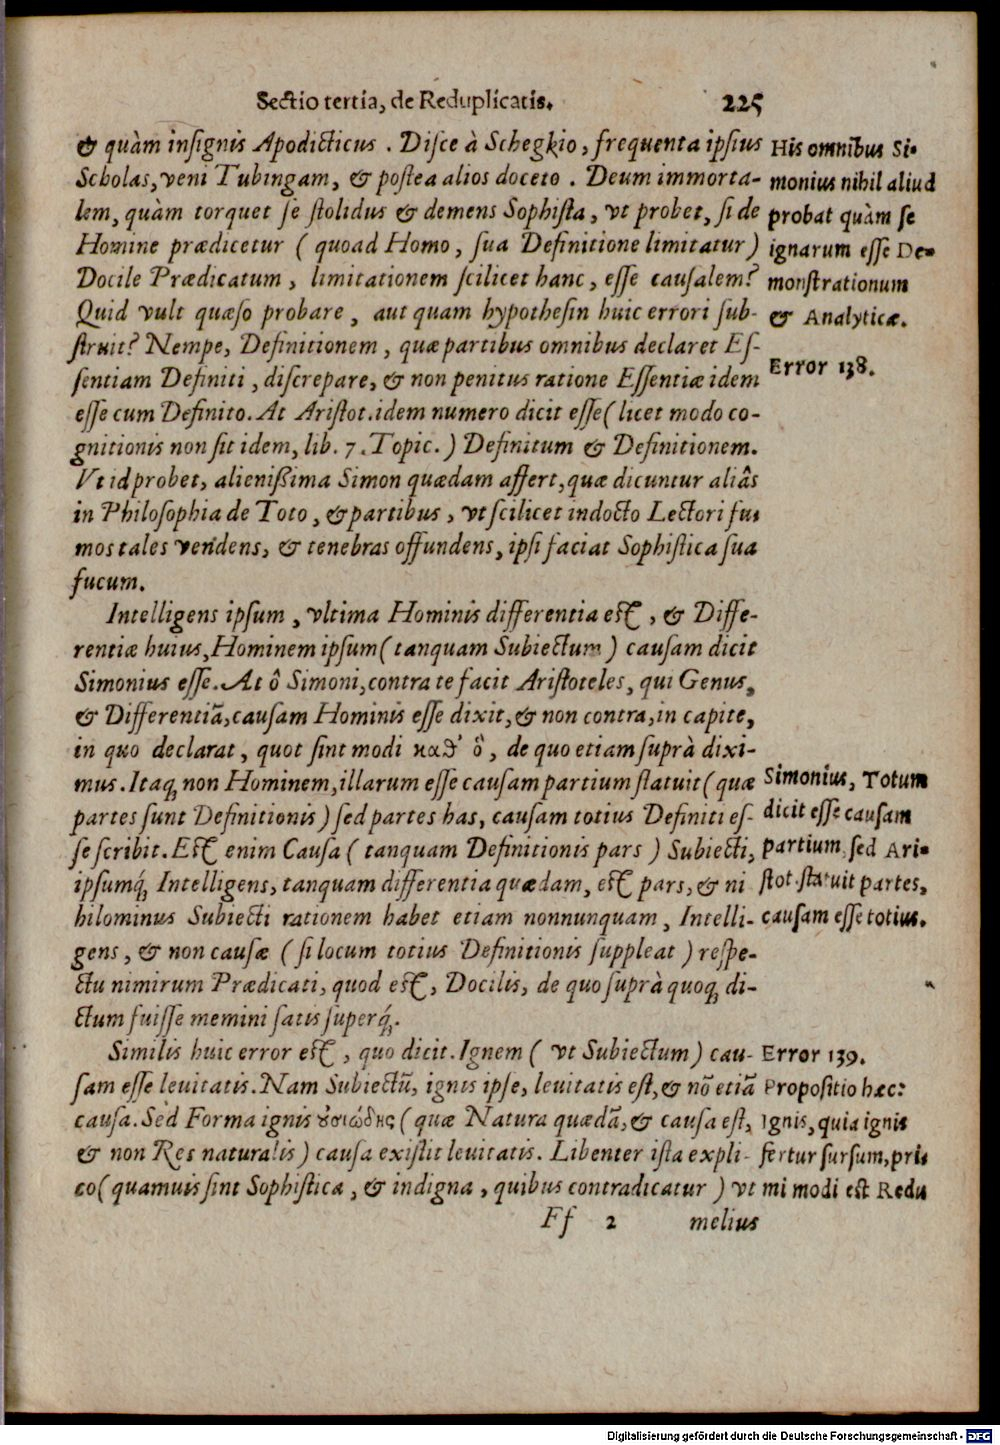 Sectio tertia, de Reduplicatis. 225
& quàm insignis Apodicticus. Disce à Schegkio, frequenta ipsius
Scholas, veni Tubingam, & postea alios doceto. Deum immorta-
lem, quàm torquet se stolidus & demens Sophista, vt probet, si de
Homine prædicetur ( quoad Homo, sua Definitione limitatur )
Docile Prædicatum, limitationem scilicet hanc, esse causalem?
Quid vult quæso probare, aut quam hypothesin huic errori sub-
struit? Nempe, Definitionem, quæ partibus omnibus declaret Es-
sentiam Definiti, discrepare, & non penitus ratione Essentiæ idem
esse cum Definito. At Aristot. idem numero dicit esse ( licet modo co-
gnitionis non sit idem, lib. 7. Topic. ) Definitum & Definitionem.
Vt id probet, alienißima Simon quædam affert, quæ dicuntur aliâs
in Philosophia de Toto, & partibus, vt scilicet indocto Lectori fu-
mos tales vendens, & tenebras offundens, ipsi faciat Sophistica sua
fucum.
His omnibus Si-
monius nihil aliud
probat quàm se
ignarum esse De-
monstrationum
& Analyticæ.
Error 138.
Intelligens ipsum, vltima Hominis differentia est, & Diffe-
rentiæ huius, Hominem ipsum ( tanquam Subiectum ) causam dicit
Simonius esse. At ô Simoni, contra te facit Aristoteles, qui Genus,
& Differentiã, causam Hominis esse dixit, & non contra, in capite,
in quo declarat, quot sint modi καθ' ὃ, de quo etiam suprà dixi-
mus. Itaq; non Hominem, illarum esse causam partium statuit ( quæ
partes sunt Definitionis ) sed partes has, causam totius Definiti es-
se scribit. Est enim Causa ( tanquam Definitionis pars ) Subiecti,
ipsumq́;, Intelligens, tanquam differentia quædam, est pars, & ni
hilominus Subiecti rationem habet etiam nonnunquam, Intelli-
gens, & non causæ ( si locum totius Definitionis suppleat ) respe-
ctu nimirum Prædicati, quod est, Docilis, de quo suprà quoq; di-
ctum fuisse memini satis superq́;.
Simonius, Totum
dicit esse causam
partium, sed Ari-
stot. statuit partes,
causam esse totius.
Similis huic error est, quo dicit. Ignem ( vt Subiectum ) cau-
sam esse leuitatis. Nam Subiectũ, ignis ipse, leuitatis est, & nõ etiã
causa. Sed Forma ignis οὐσιώδης ( quæ Natura quædã, & causa est,
& non Res naturalis ) causa existit leuitatis. Libenter ista expli-
co ( quamuis sint Sophistica, & indigna, quibus contradicatur ) vt
Error 139.
Propositio hæc:
Ignis, quia ignis
fertur sursum, pri-
mi modi est Redu
Ff 2 melius
Digitalisierung gefördert durch die Deutsche Forschungsgemeinschaft - DFG